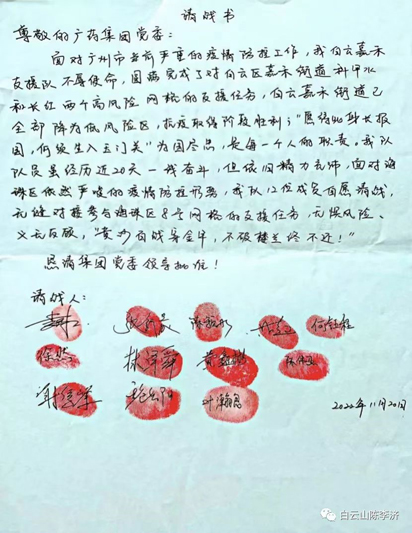 请战书
尊敬的广药集团党委：
面对广州市当前严重的疫情防控工作，我白云嘉禾
支援队不辱使命，圆满完成了对白云区嘉禾街道科甲水
和长红两个高风险网格的支援任务，白云嘉禾街道已
全部降为低风险区，抗疫取得阶段胜利；“愿得此身长报
国，何须生入玉门关”为国尽忠，是每一个人的职责。我队
队员虽经历近20天一线奋斗，但依旧精力充沛，面对海
珠区依然严峻的疫情防控形势，我队12位成员自愿请战，
无缝对接参与海珠区8个网格的支援任务，无惧风险、
义无反顾，“黄沙百战穿金甲，不破楼兰终不还！”
恳请集团党委领导批准！
请战人：
叶瀚恩
2022年11月20日
白云山陈李济